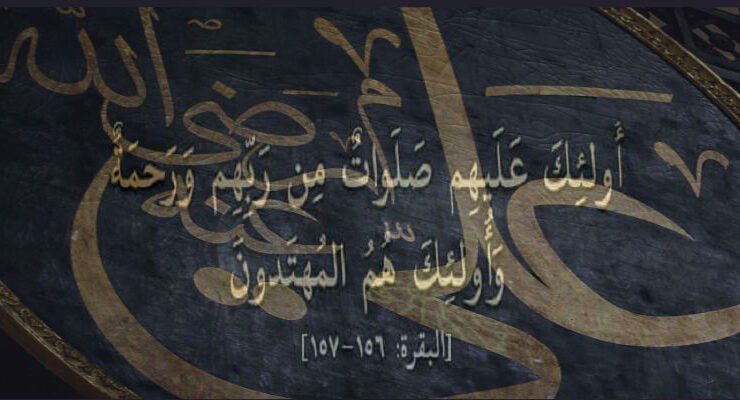 أُولَئِكَ عَلَيهِم صَلَوَاتٌ مِن رَبِّهِم وَرَحمَةٌ
وَأُولَئِكَ هُمُ المُهتَدونَ
[البقرة: ١٥٦-١٥٧]
علي رضي الله عنه